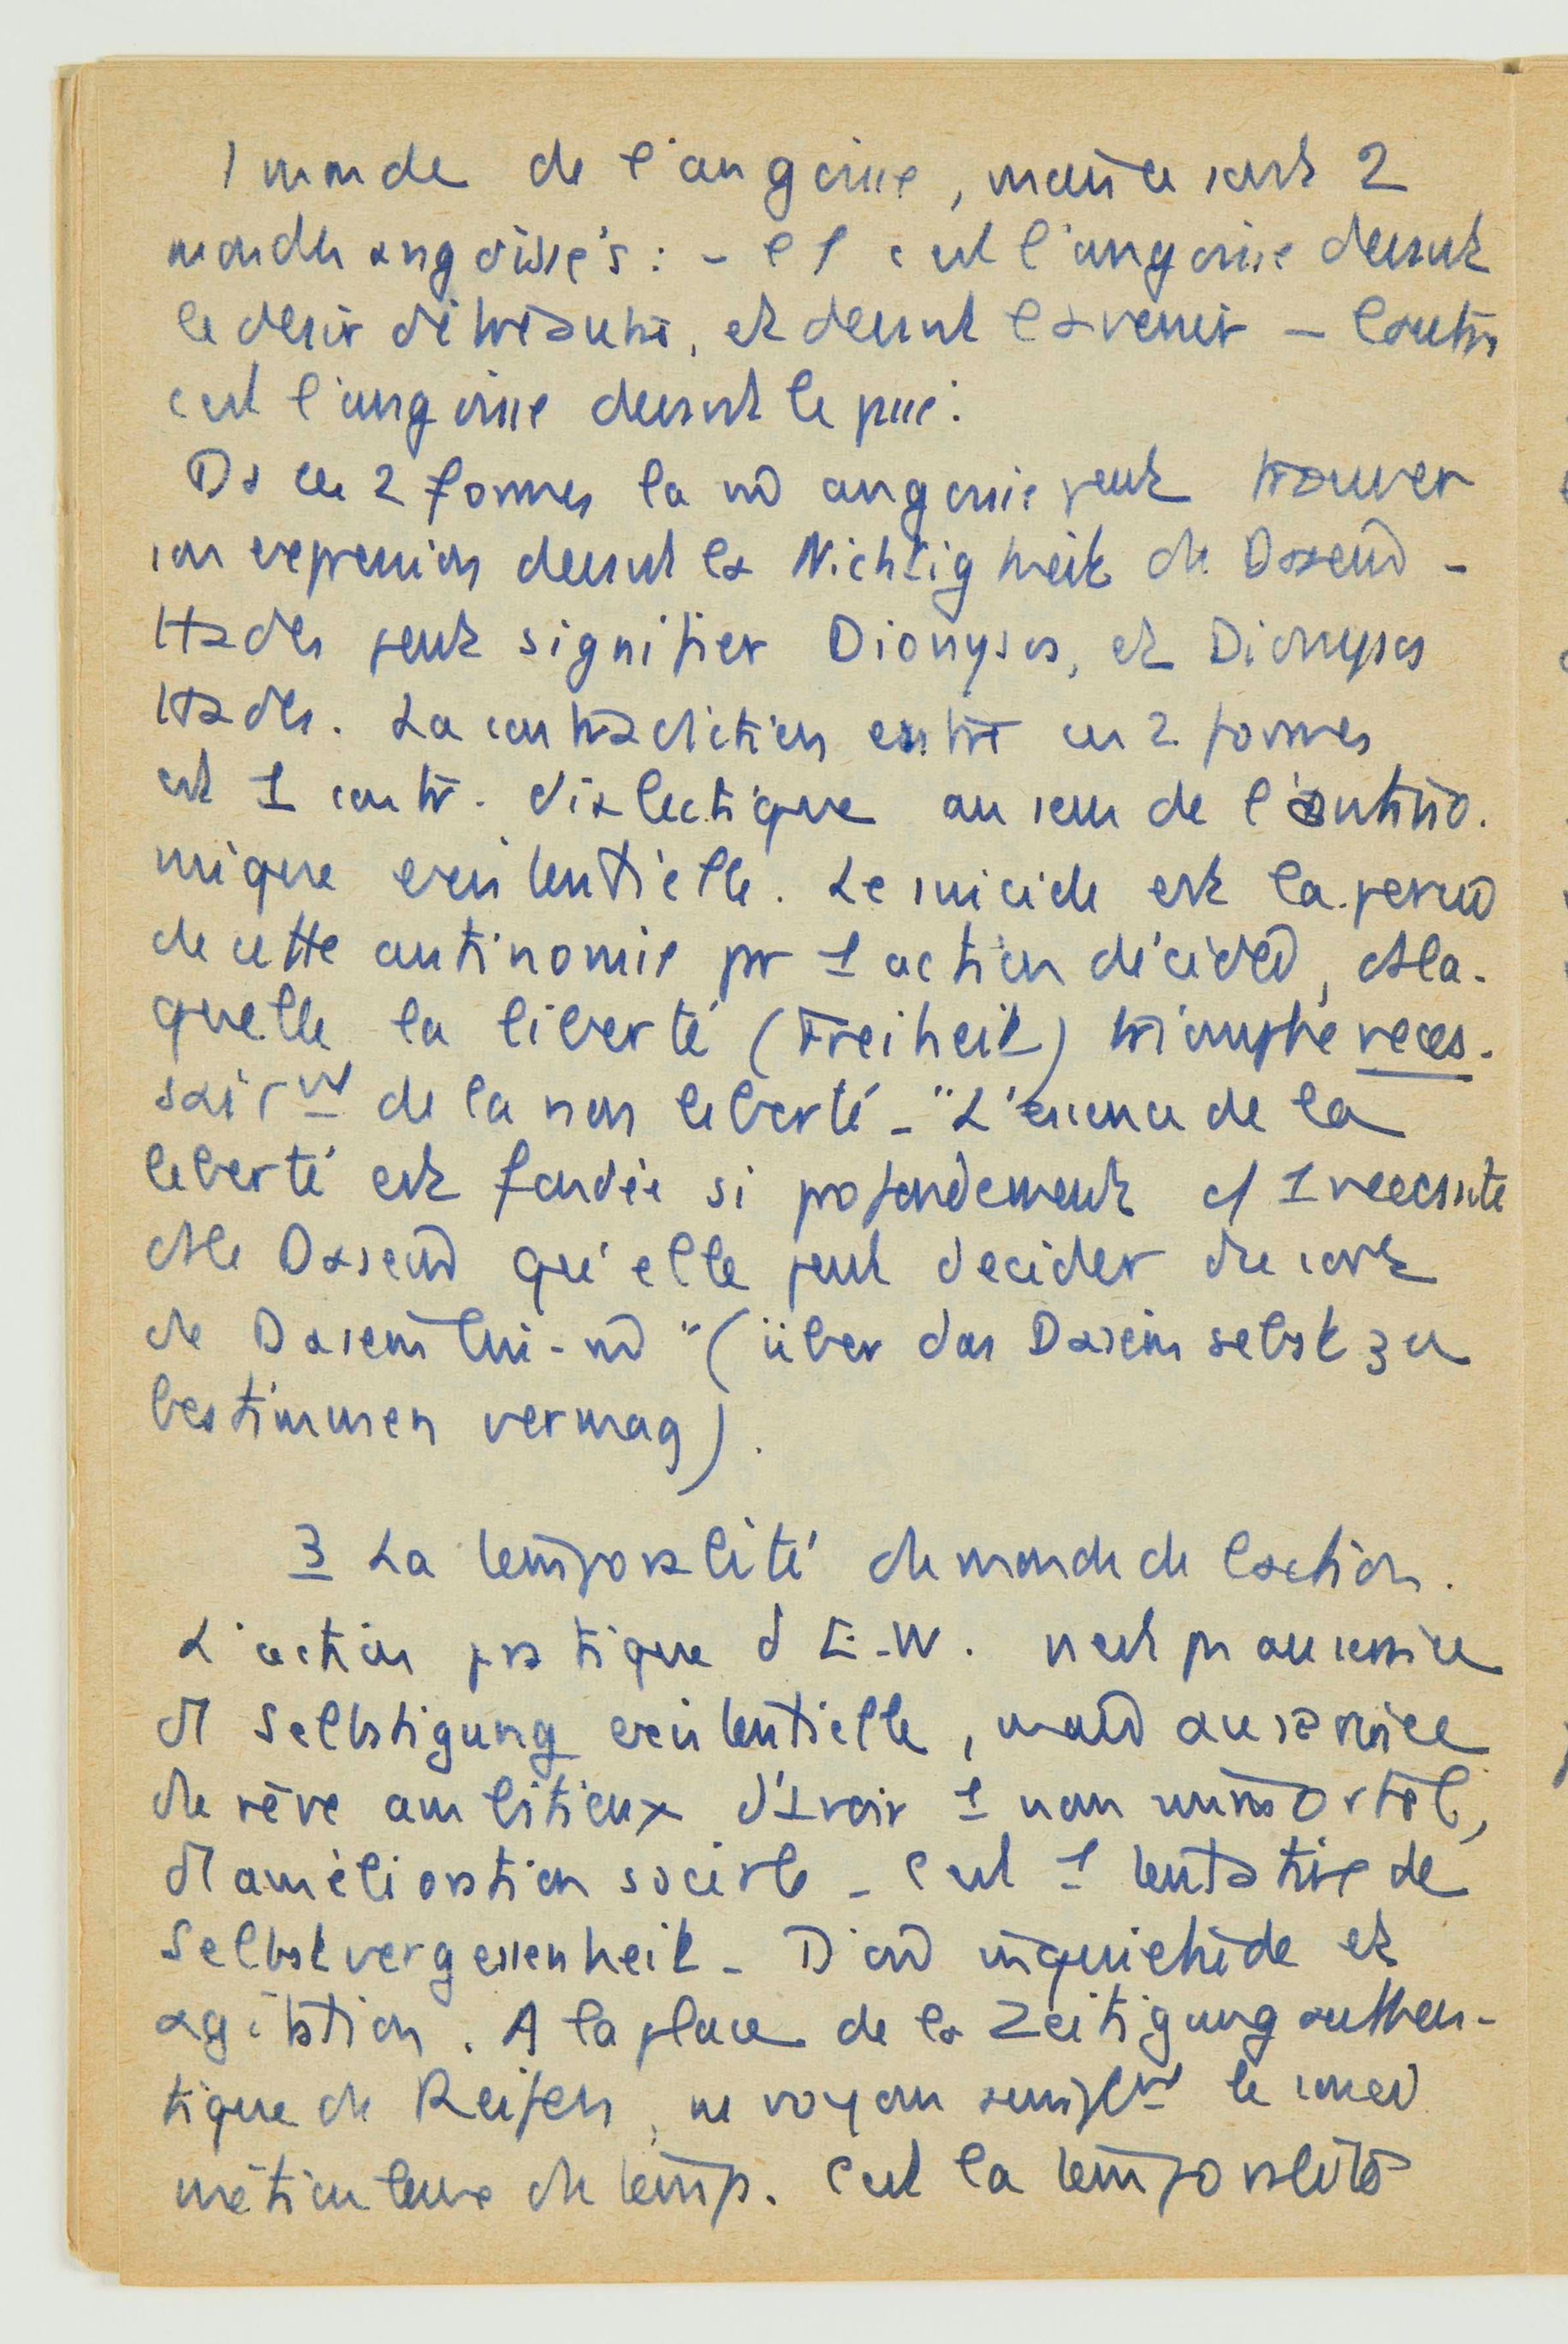 1 monde de l'angoisse, mais ce sont 2
mondes angoissés : - l'1 c'est l'angoisse devant
le désir d'être autre, et devant l'avenir - l'autre
c'est l'angoisse devant le passé.
Ds ces 2 formes la m̂ angoisse peut trouver
son expression devant la Nichtigkeit du Dasein -
Hades peut signifier Dionysos, et Dionysos
Hades. La contradiction entre ces 2 formes
est 1 contr. dialectique au sein de l'antino-
mique existentielle. Le suicide est la
de cette antinomie pr 1 action décidée, ds la-
quelle la liberté (Freiheit) triomphe néces-
sair^mt de la non liberté - "L'essence de la
liberté est fondée si profondement c/ 1 necessité
ds le Dasein qu'elle peut decider du sort
du Dasein lui-m̂" (über das Dasein selbst zu
bestimmen vermag).
3 La temporalité du monde de l'action.
L'action pratique d'E.W. n'est pas au service
d'1 Selbstigung existentielle, mais au service
du rêve ambitieux d'avoir 1 nom immortel,
d'1 amélioration sociale - c'est 1 tentative de
Selbstvergessenheit - D'où inquiétude et
agitation. A la place de la Zeitigung authen-
tique du Reifen, ns voyons simpl^mt le souci
méticuleux du temps. C'est la temporalité